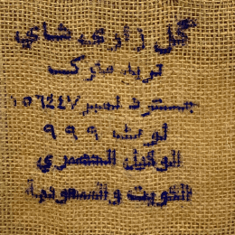 گل زاری شای
ترید مارک
جسترد نمبر ١٥٦٤٤٧
لوت ٩٩٩
الوكيل الحصري
الكويت والسعودية